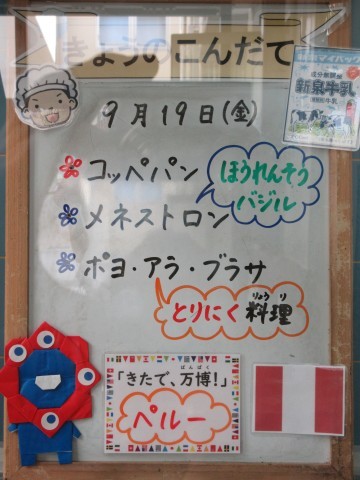 きょうのこんだて
9月19日(金)
新泉牛乳
コッペパン
ほうれんそう
バジル
メネストロン
ポヨ・アラ・ブラサ
とりにく料理
りょうり
「きたで、万博!」
ばんぱく
ペルー